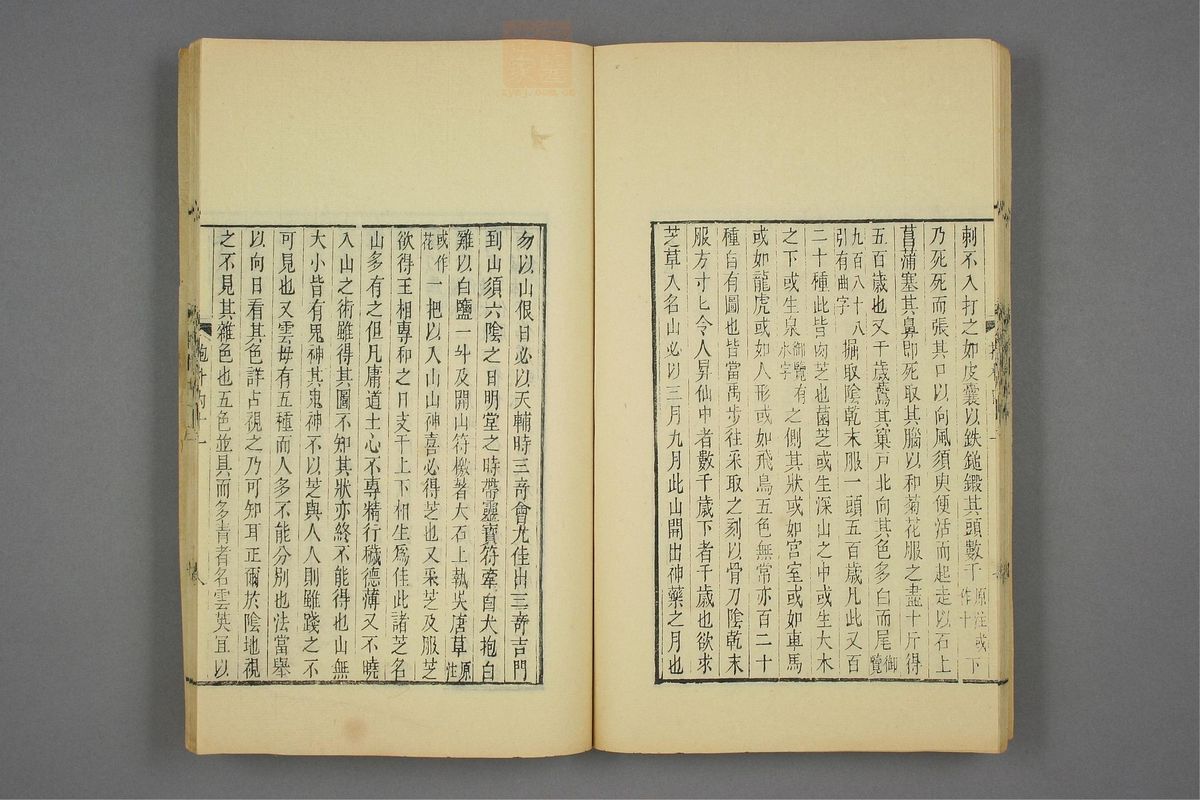 刺不入打之如皮囊以鉄鎚鍛其頭數千原注或作十下
乃死死而張其口以向風須臾便活而起走以石上
菖蒲塞其鼻即死取其腦以和菊花服之盡十斤得
五百歲也又千歲鷰其窠戸北向其色多白而尾御覽
九百八十八引有曲字掘取陰乾末服一頭五百歲凡此又百
二十種此皆肉芝也菌芝或生深山之中或生大木
之下或生泉御覽有水字之側其狀或如宮室或如車馬
或如龍虎或如人形或如飛鳥五色無常亦百二十
種自有圖也皆當禹步往采取之刻以骨刀陰乾末
服方寸匕令人昇仙中者數千歲下者千歲也欲求
芝草入名山必以三月九月此山開出神藥之月也
勿以山佷日必以天輔時三奇會尤佳出三奇吉門
到山須六陰之日明堂之時帶靈寶符牽白犬抱白
雞以白鹽一斗及開山符檄著大石上執吳唐草原注
或作花一把以入山山神喜必得芝也又采芝及服芝
欲得王相專和之日支干上下相生爲佳此諸芝名
山多有之但凡庸道士心不專精行穢德薄又不曉
入山之術雖得其圖不知其狀亦終不能得也山無
大小皆有鬼神其鬼神不以芝與人人則雖踐之不
可見也又雲母有五種而人多不能分別也法當舉
以向日看其色詳占視之乃可知耳正爾於陰地視
之不見其雜色也五色並具而多青者名雲英宜以